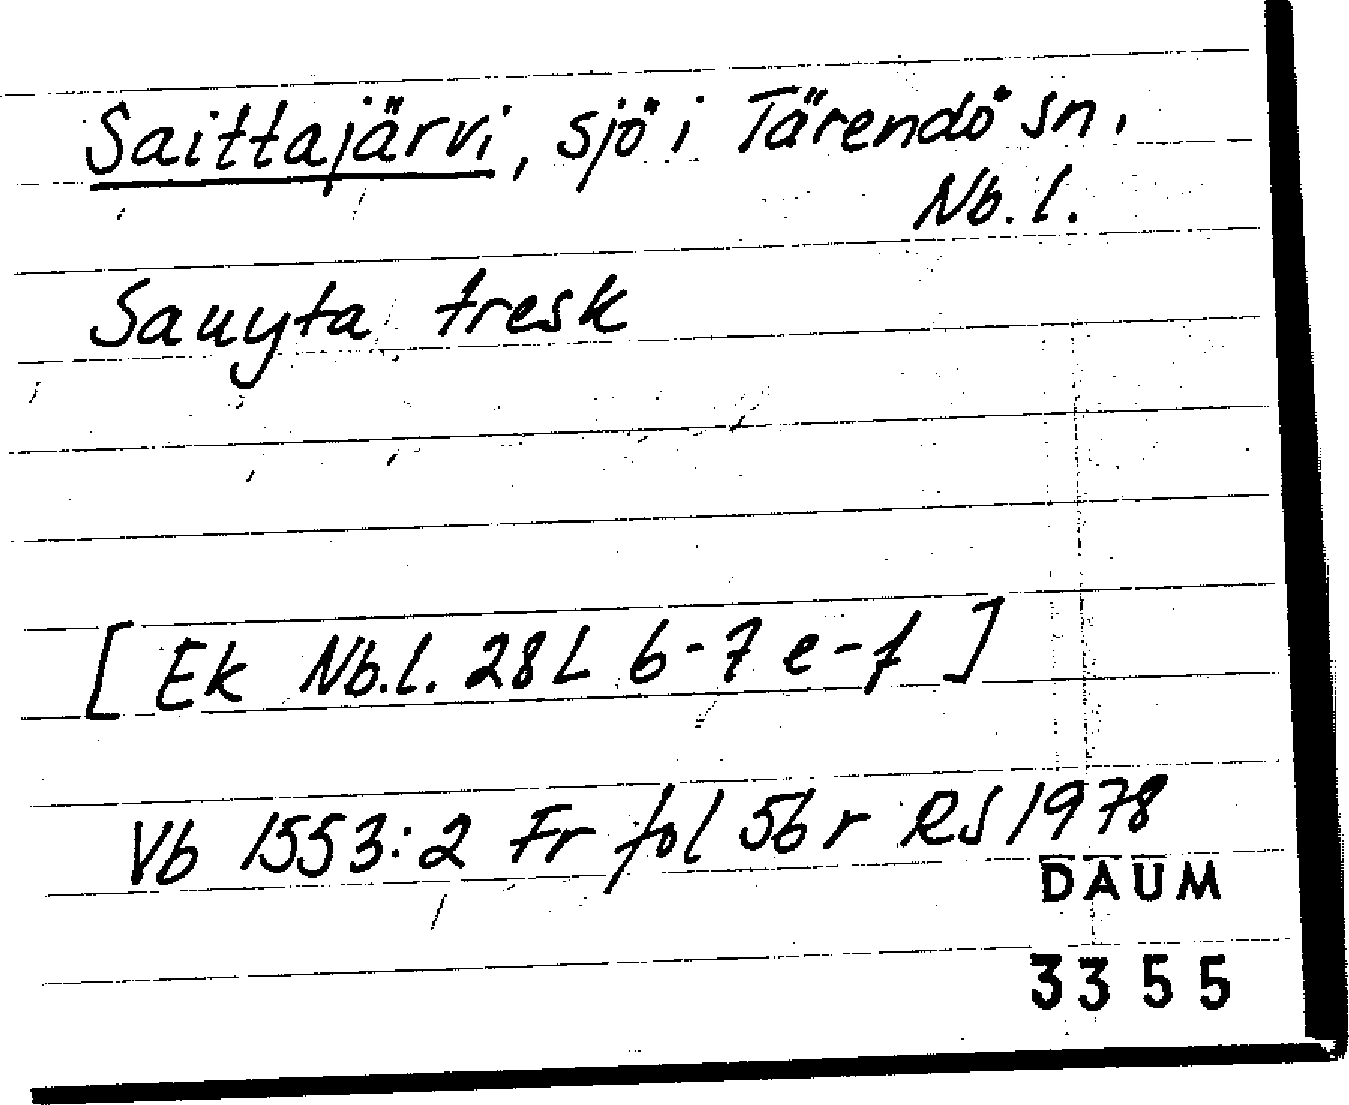 Saittajärvi, sjö i Tärendö sn.
Nb. l.
Sauyta tresk
[ Ek Nb.l. 28L 6-7 e-f ]
Vb 1553:2 Fr fol 56 r RS 1978
DAUM
3355